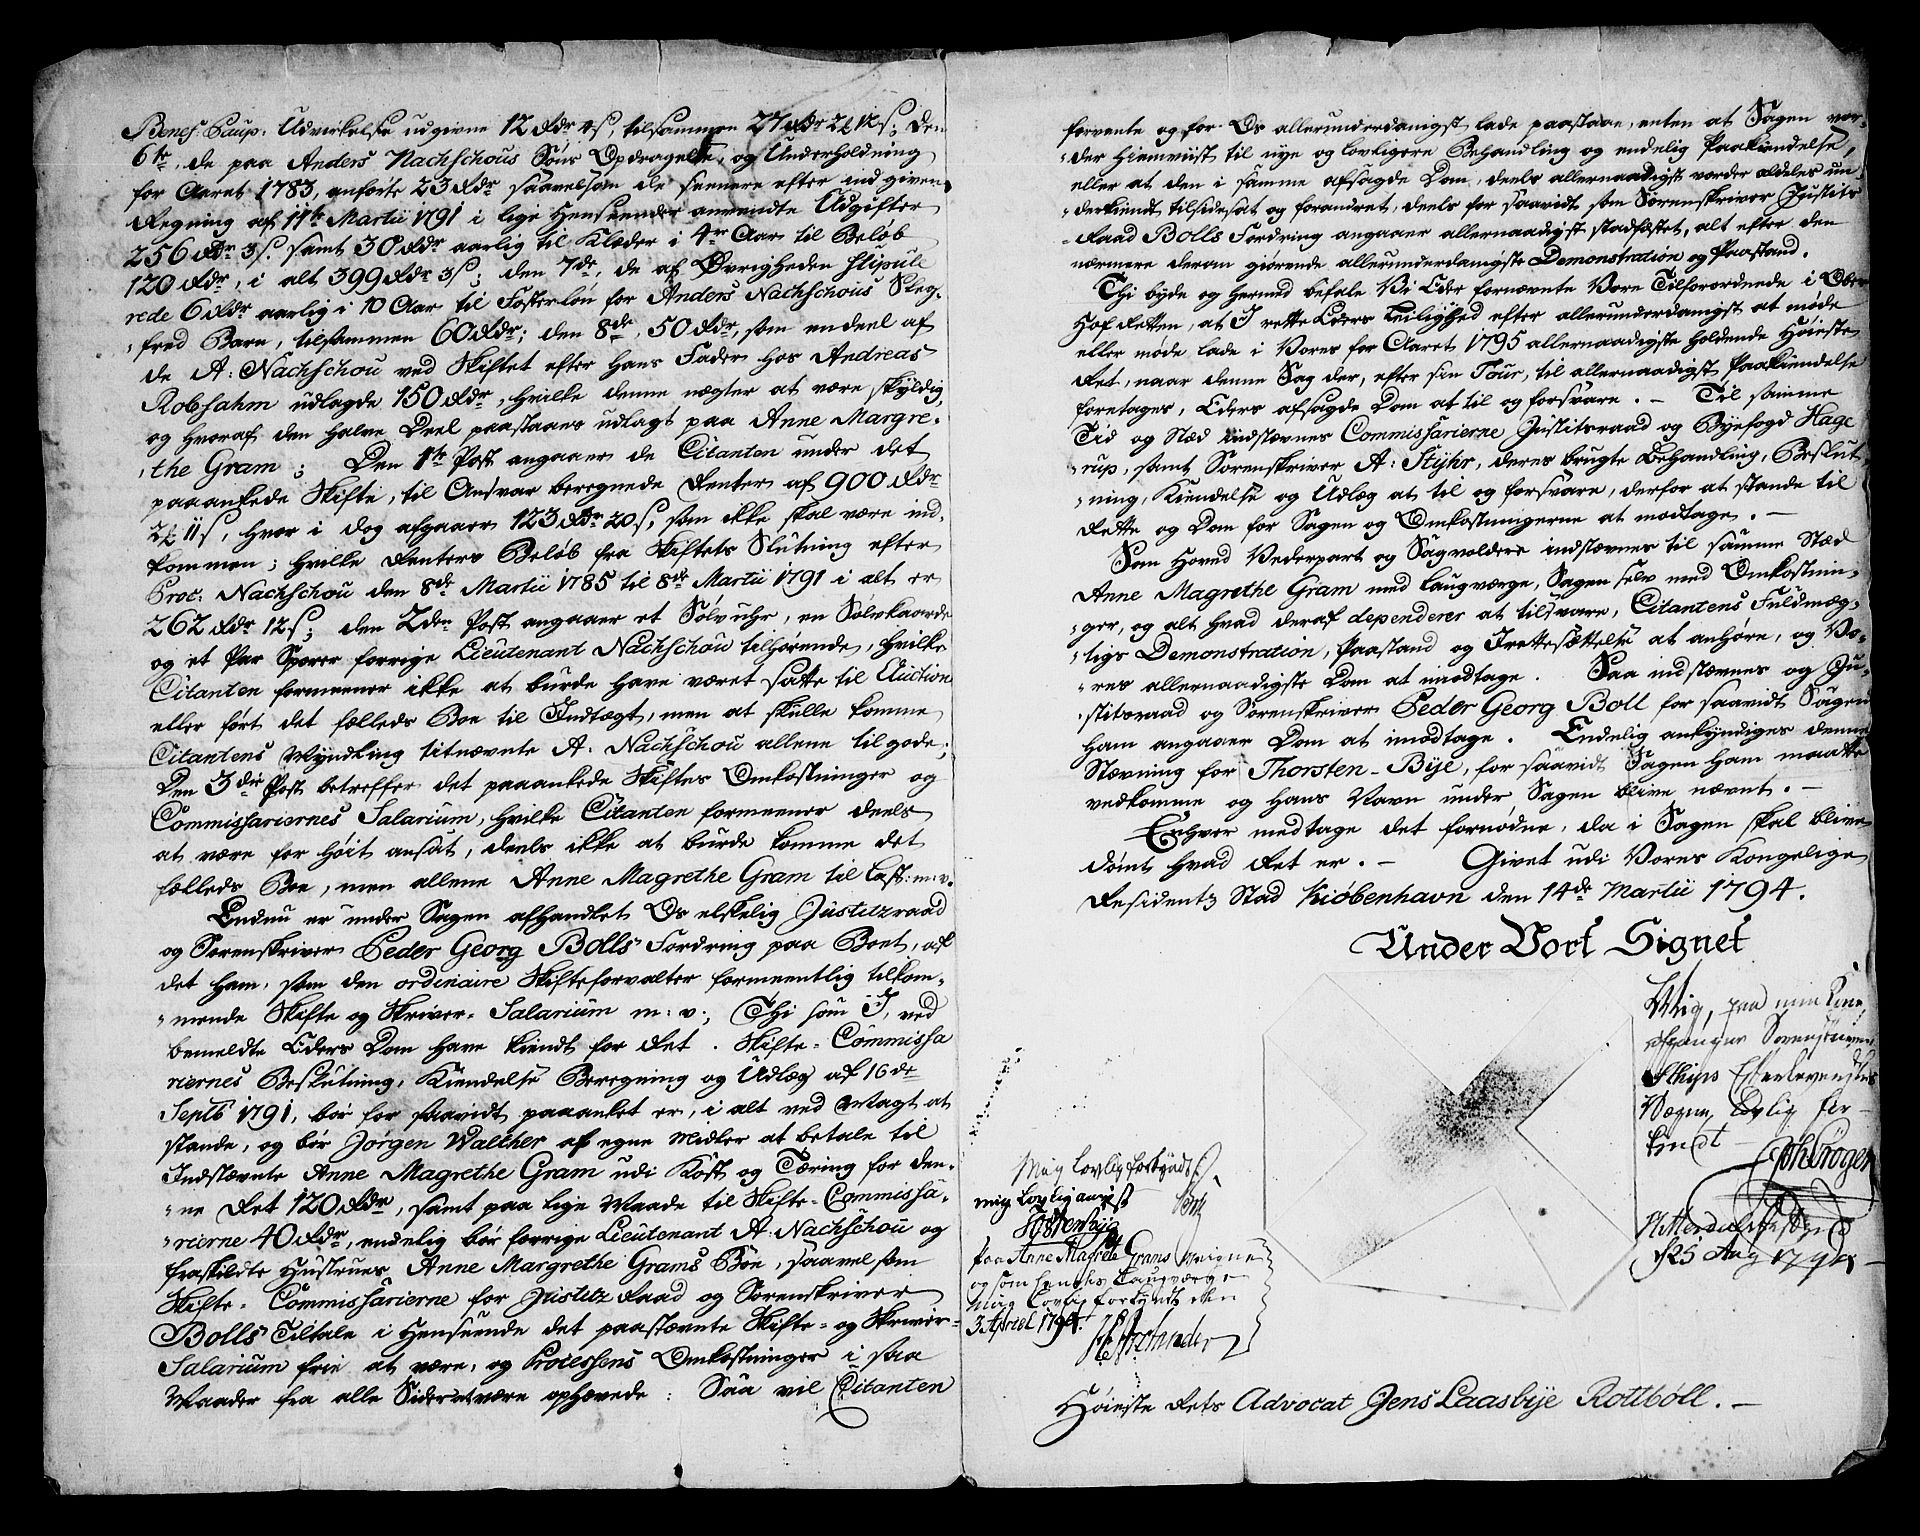 Benef: Paup: Udvirkelse udgivne 12 Rdr 4 s, tilsammen 27 Rdr 2 12 s; den
6te, de paa Anders Nachschous Søns Opdragelse, og Underholdning
for Aaret 1783, anførte 23 Rdr saavelsom de senere efter indgiven
Regning af 11te Martii 1791 i lige Henseender anvendte Udgifter
256 Rdr 3 s. samt 30 Rdr aarlig til Klæder i 4r Aar til Beløb
120 Rdr, i alt 399 Rdr 3 s; den 7de, de af Øvrigheden stipule
rede 6 Rdr aarlig i 10 Aar til Fosterløn for Anders Nachschous Sleg-
fred Barn, tilsammen 60 Rdr; den 8de, 50 Rdr, som en deel af
de A: Nachschou ved Skiftet efter hans Fader hos Andreas
Robsahm udlagde 150 Rdr, hvilke denne nægter at være skyldig,
og hvoraf den halve Deel paastaaes udlagt paa Anne Margre-
the Gram; Den 1te Post angaaer de Citanten under det
paaankede Skifte, til Ansvar beregnede Renter af 900 Rdr
2 11 s, hvor i dog afgaaer 123 Rdr 20 s, som ikke skal være ind-
kommen; hvilke Renters Beløb fra Skiftets Slutning efter
Proc: Nachschou den 8de Martii 1785 til 8de Martii 1791 i alt er
262 Rdr 12 s; den 2den Post angaaer et Sølvuhr, en Sølvkaarde
og et Par Sporer forrige Lieutenant Nachschou tilhørende, hvilke
Citanten formeener ikke at burde have været satte til Auction
eller ført det fælleds Boe til Indtægt, men at skulle komme
Citantens Myndling bitnævnte A: Nachschou allene til gode;
Den 3die Post betreffer det paaankede Skiftes Omkostninger og
Commissariernes Salarium, hvilke Citanten formeener deels
at være for høit ansat, deels ikke at burde komme det
fælleds Boe, men allene Anne Magrethe Gram til Last: m: v.
Endnu er under Sagen afhandlet Os elskelig Justitzraad
og Sorenskriver Peder Georg Bolls Fordring paa Boet, af
det ham, som den ordinaire Skifteforvalter formeentlig tilkom-
mende Skifte og Skriver-Salarium m: v:, Thi som I, ved
bemeldte Eders Dom have kiendt for Ret. Skifte-Commissa
riernes Beslutning, Kiendelse Beregning og Udlæg af 16de
Septb 1791, bør for saavidt paaanket er, i alt ved Magt at
stande, og bør Jørgen Walther af egne Midler at betale til
Indstævnte Anne Magrethe Gram udi Kost og Tæring for den-
ne Ret 120 Rdr, samt paa lige Maade til Skifte-Commissa-
rierne 40 Rdr, endelig bør forrige Lieutenant A: Nachschou og
fraskildte Hustrues Anne Margrethe Grams Boe, saavel som
Skifte-Commissarierne for Justitz Raad og Sorenskriver
Bolls Tiltale i Henseende det paastævnte Skifte- og Skriver-
Salarium frie at være, og Processens Omkostninger i saa
Maader fra alle Sider at være ophævede: Saa vil Citanten
forvente og for Os allerunderdanigst lade paastaae, enten at Sagen vor-
der hiemviist til nye og lovligere Behandling og endelig Paakiendelse,
eller at den i samme afsagde Dom, deels allernaadigst vorder aldeles un-
derkiendt tilsidesat og forandret, deels for saavidt som Sorenskriver Justits
Raad Bolls Fordring angaaer allernaadigst stadfæstet, alt efter den
nærmere derom giørende allerunderdanigste Demonstration og Paastand.
Thi byde og hermed befale Vi Eder fornævnte Vore Tilforordnede i Ober
Hof Retten, at I rette Eders Leilighed efter allerunderdanigst at møde
eller møde lade i Vores for Aaret 1795 allernaadigste holdende Høieste
Ret, naar denne Sag der, efter sin Tour, til allernaadigst Paakiendelse
foretages, Eders afsagde Dom at til og forsvare. - Til samme
Tid og Stæd indstævnes Commissarierne Justitsraad og Byefogd Hage
rup, samt Sorenskriver A: Styhr, deres brugte Behandling, Beslut-
ning, Kiendelse og Udlæg at til og forsvare, derfor at stande til
Rette og Dom for Sagen og Omkostningerne at modtage. -
Som Hoved Vederpart og Sagvoldere indstævnes til samme Stæd
Anne Magrethe Gram med Laugværge, Sagen selv med Omkostnin-
ger, og alt hvad deraf dependerer at tilsvare, Citantens Fuldmæg-
tigs Demonstration, Paastand og Irettesættelse at anhøre, og Vo-
res allernaadigste Dom at imodtage. Saa indstævnes og Ju-
stitsraad og Sorenskriver Peder Georg Boll for saavidt Sagen
ham angaaer Dom at imodtage. Endelig ankyndiges denne
Stævning for Thorsten-Bye, for saavidt Sagen ham maatte
vedkomme og hans Navn under Sagen blive nævnt. -
Enhver medtage det fornødne, da i Sagen skal blive
dømt hvad Ret er. - Givet udi Vores Kongelige
Residentz Stad Kiøbenhavn den 14de Martii 1794.
Under Vort Signet
Mig, paa min
Sorenskriver
Sthyrs Efterleverskes
Vegne, Lovlig for-
kyndt
25 Aug 1794
Mig Lovlig forkyndt
mig Lovlig anvist
paa Anne Magrete Grams Veigne
og som hendes Laugværge
Mig Lovlig forkyndt den
3 April 1794.
Høieste Rets Advocat Jens Laasbye Rottbøll. -